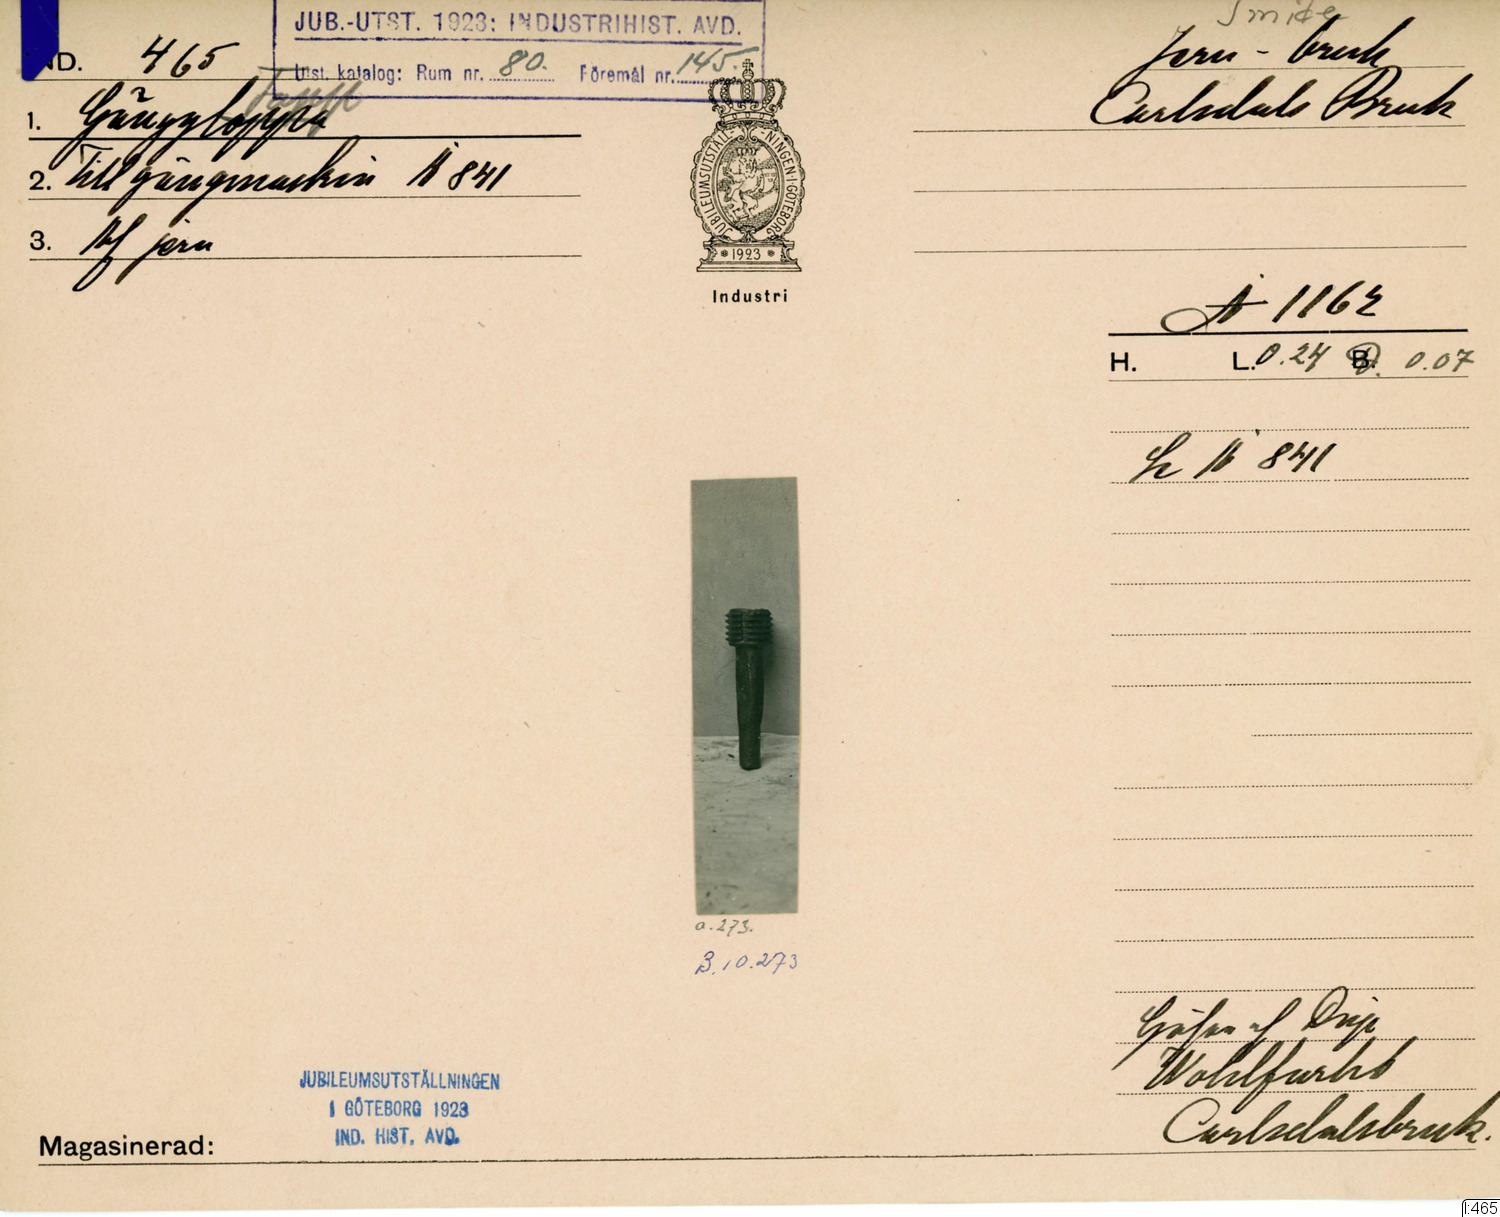 Smide
JUB.-UTST. 1923: INDUSTRIHIST. AVD.
Utst. katalog: Rum nr. 80. Föremål nr. 145.
ND. 465
Jern-bruk
Carlsdals Bruk
1. Gängtappa
2. Till gängmaskin N 841
3. Af jern
JUBILEUMSUTSTÄLLNINGEN I GÖTEBORG
* 1923 *
Industri
N 1162
H. L. 0.24 B. D. 0.07
Se N 841
a.273.
B.10.273
Gåfva af Disp
Wohlfarth
Carlsdalsbruk.
JUBILEUMSUTSTÄLLNINGEN
I GÖTEBORG 1923
IND. HIST. AVD.
Magasinerad:
I:465